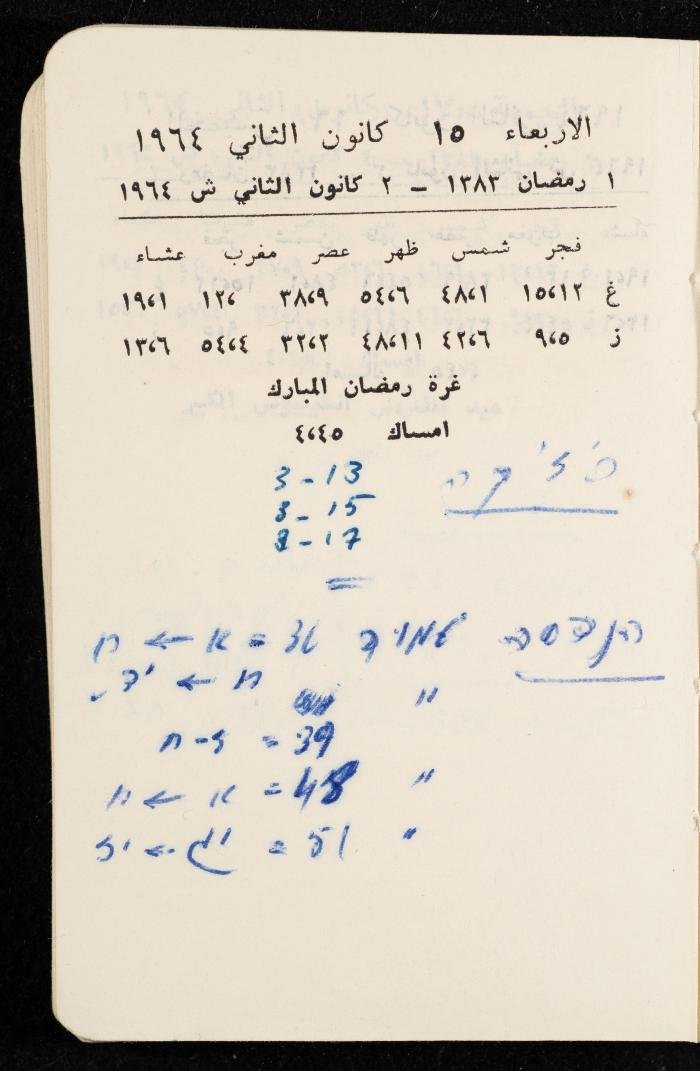 الاربعاء ١٥ كانون الثاني ١٩٦٤
١ رمضان ١٣٨٣ – ٢ كانون الثاني ش ١٩٦٤
فجر شمس ظهر عصر مغرب عشاء
غ ١٥،١٢ ٤٨،١ ٥٤،٦ ٣٨،٩ ١٢، ١٩،١
ز ٩،٥ ٤٢،٦ ٤٨،١١ ٣٢،٢ ٥٤،٤ ١٣،٦
غرة رمضان المبارك
امساك ٤،٤٥
פיזיקה
3-13
8-15
8-17
הנדסה עמוד 31 = א ← ח
" ח ← יד
39 = ז-ח
" 48 = א ← ח
" 51 = יג ← יז